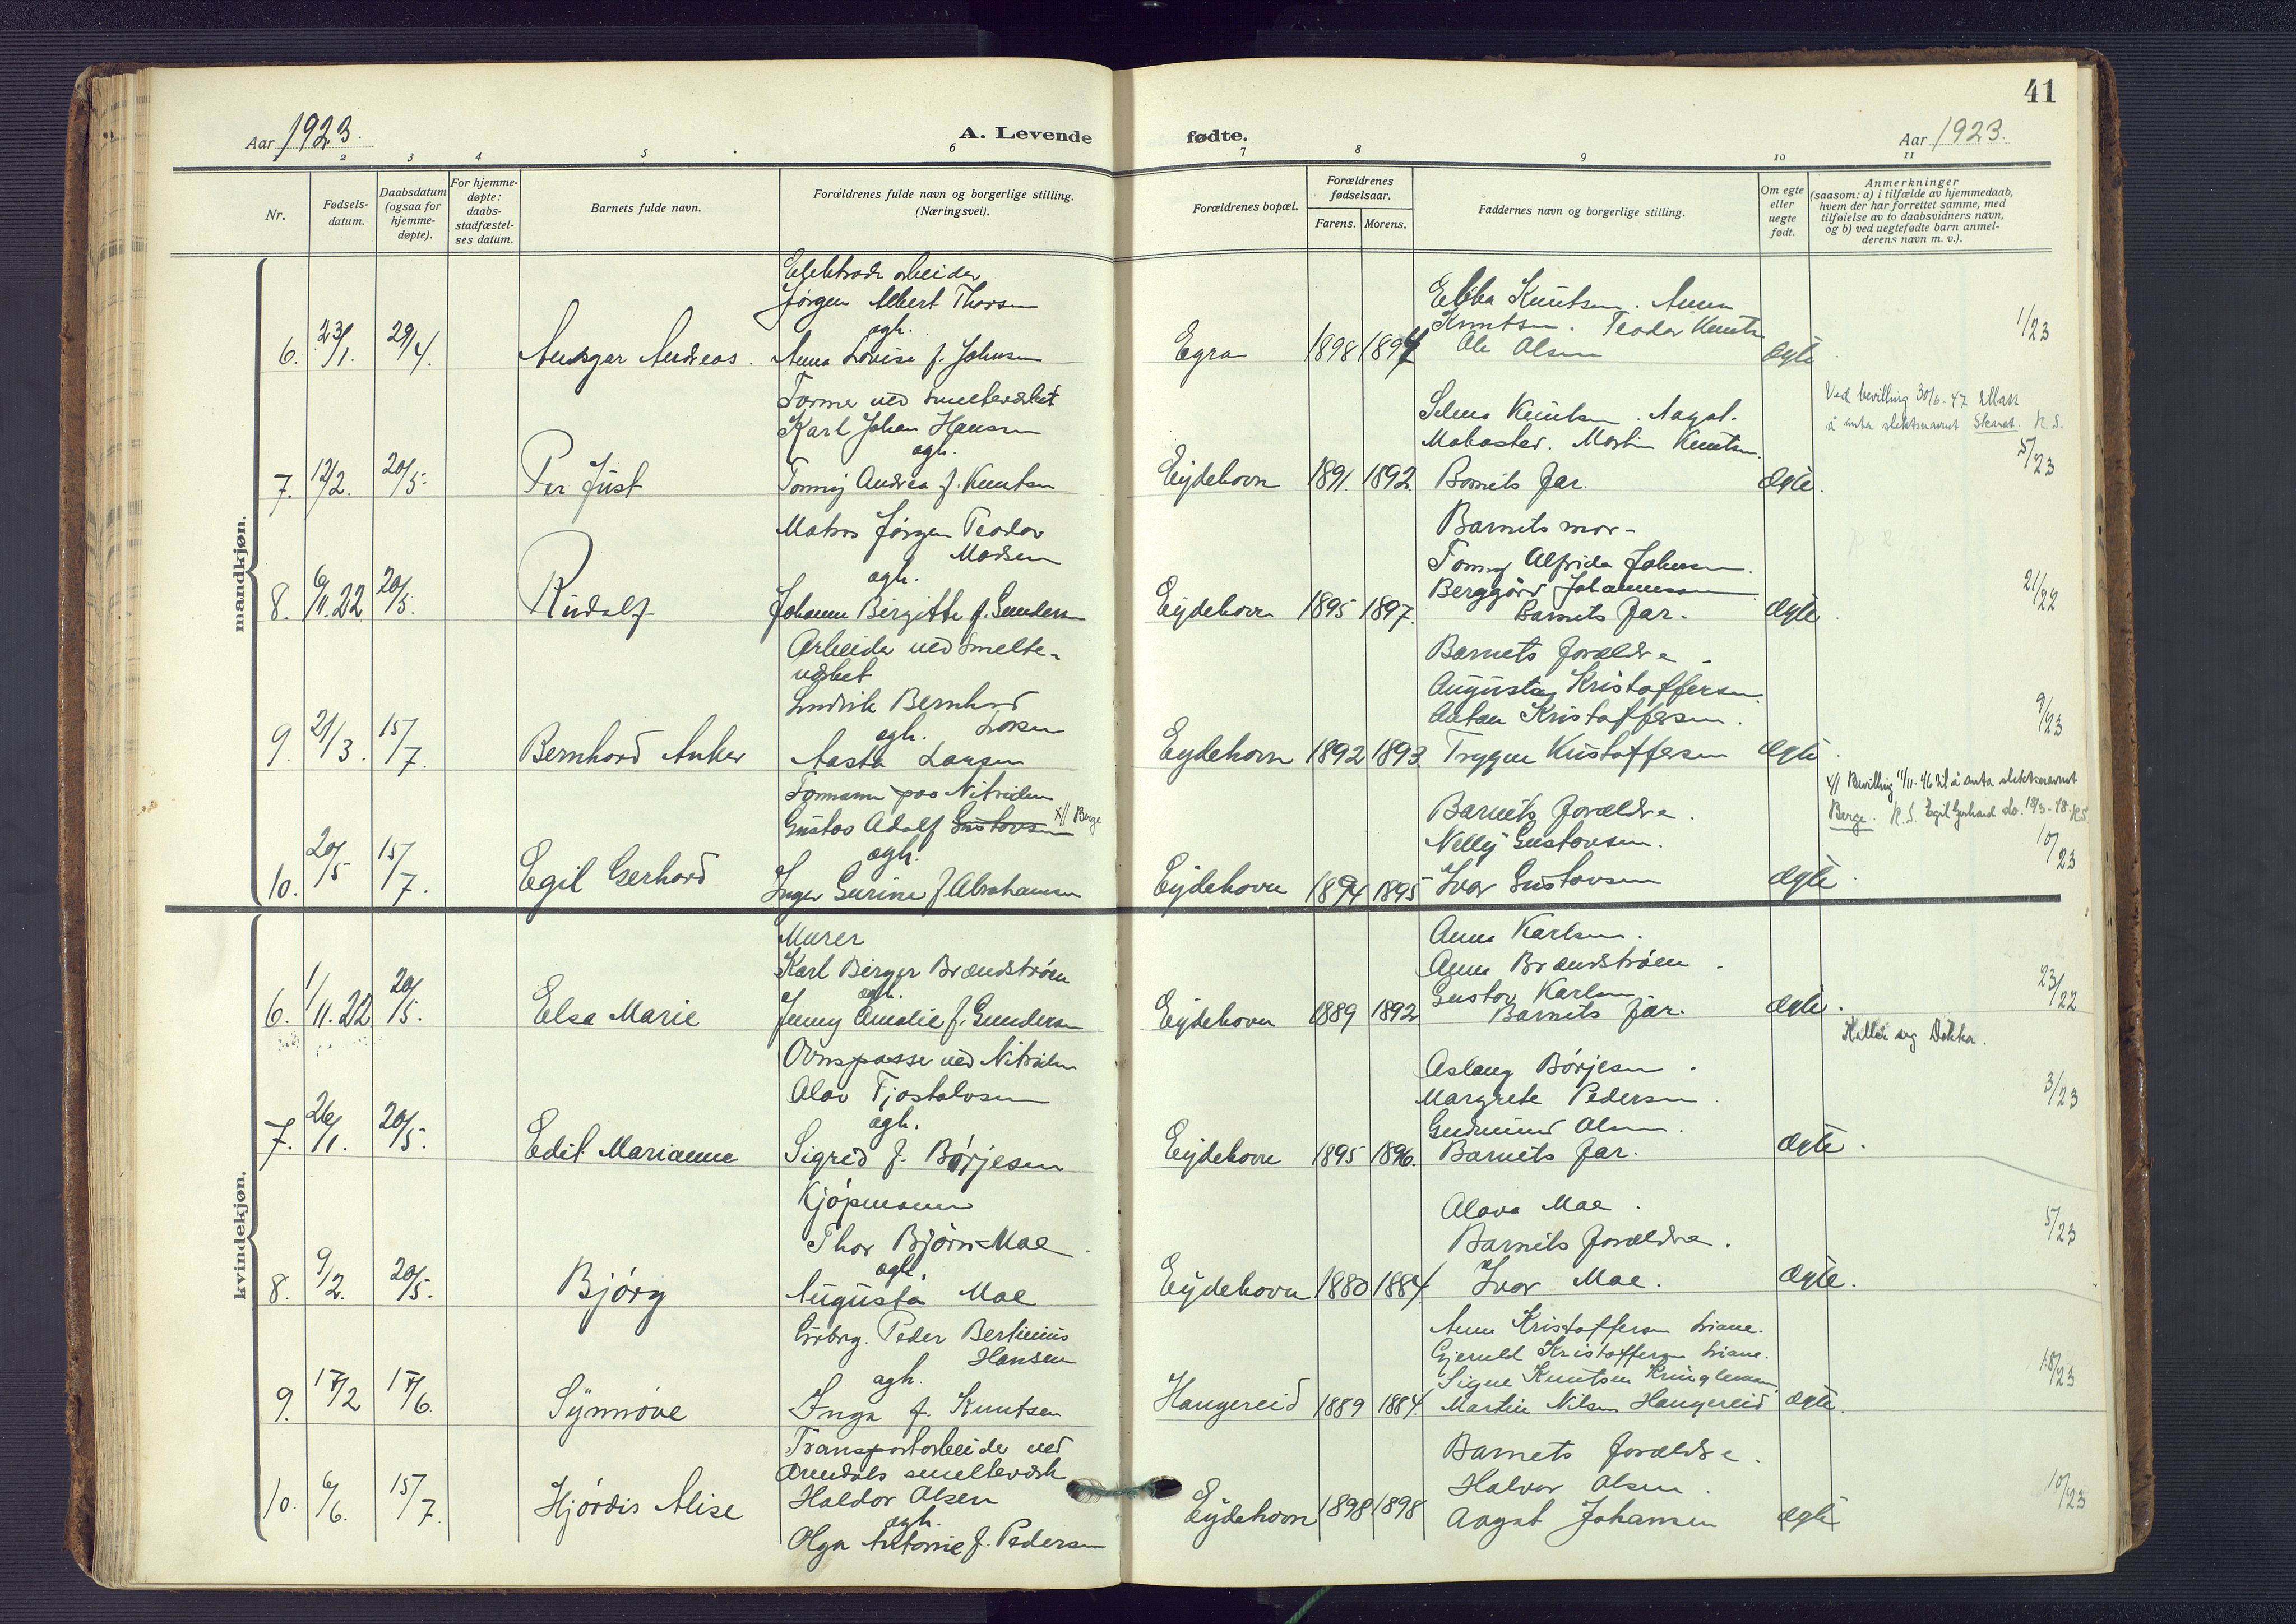 41
Aar 1923.
A. Levende fødte.
Aar 1923.
2 3 4 5 6 7 8 9 10 11
Nr.
Fødsels-
datum.
Daabsdatum
(ogsaa for
hjemme-
døpte).
For hjemme-
døpte:
daabs-
stadfæstel-
ses datum.
Barnets fulde navn.
Forældrenes fulde navn og borgerlige stilling.
(Næringsvei).
Forældrenes bopæl.
Forældrenes
fødselsaar.
Farens. Morens.
Faddernes navn og borgerlige stilling.
Om egte
eller
uegte
født.
Anmerkninger
(saasom: a) i tilfælde av hjemmedaab,
hvem der har forrettet samme, med
tilføielse av to daabsvidners navn,
og b) ved uegtefødte barn anmel-
derens navn m. v.).
mandkjøn.
6. 23/1. 29/4. Ansgar Andreas.
Elektrode arbeider
Jørgen Albert Thorsen
ogh.
Anna Lovise f. Johnsen
Egra 1898 1894
Ebba Knutsen. Anna
Knutsen. Teodor Knuts
Ole Olsen
ægte
1/23
7. 12/2. 20/5. Per Just
Former ved smelteverket
Karl Johan Hansen
ogh.
Tonny Andrea f. Knutsen
Eydehovn 1891. 1892.
Selma Knutsen. Aagot
Martin Knutsen.
Barnets far.
ægte.
Ved bevilling 30/6-47 tillatt
å anta slektsnavnet Skaret. K.S.
5/23
8. 6/11.22 20/5. Rudolf
Matros Jørgen Teodor
Madsen
ogh.
Johanne Birgitte f. Gundersen
Eydehovn 1895 1897.
Barnets mor-
Tonny Alfrida Johnsen.
Berggård Johannessen
Barnets far.
ægte.
21/22
9. 21/3. 15/7. Bernhard Anker
Arbeider ved smelte-
verket
Ludvik Bernhard
ogh. Larsen
Aasta Larsen
Eydehovn 1892 1893
Barnets forældre.
Augusta Kristoffersen.
Anton Kristoffersen.
Trygve Kristoffersen
ægte.
9/23
10. 20/5 15/7. Egil Gerhard
Formann paa Nitriden
Gustav Adolf Gustavsen x// Berge
ogh.
Inger Gurine f. Abrahamsen
Eydehovn 1894 1895
Barnets forældre.
Nelly Gustavsen.
Ivar Gustavsen
ægte.
x// Bevilling 11/11-46 til å anta slektsnavnet
Berge. K.S. Egil Gerhard do. 18/3-48. K.S.
10/23
kvindekjøn.
6. 1/11.22 20/5. Elsa Marie
Murer
Karl Birger Brandstrøm
ogh.
Jenny Amalie f. Gundersen
Eydehovn 1889 1892
Anna Karlsen.
Anna Brandstrøm.
Gustav Karlsen
Barnets far.
ægte.
23/22
7. 26/1. 20/5. Edit Marianne
Ovnspasser ved Nitriden
Olav Tjostolvsen
ogh.
Sigrid f. Børjesen
Eydehovn 1895 1896.
Aslaug Børjesen.
Margrete Pedersen.
Gudmund Olsen.
Barnets far.
ægte.
Kaller seg Dokka.
3/23
8. 9/2. 20/5. Bjørg
Kjøpmann
Thor Bjørn-Moe
ogh.
Augusta Moe
Eydehovn 1880 1884
Olava Moe.
Barnets forældre.
Ivar Moe.
ægte.
5/23
9. 17/2 17/6. Synnøve
Grbrg. Peder Bertinius
Hansen
ogh.
Inga f. Knutsen
Haugereid 1889 1884.
Anna Kristoffersen Liane.
Gjeruld Kristoffersen Liane.
Signe Knutsen
Martin Nilsen Haugereid
ægte.
18/23
10. 6/6. 15/7. Hjørdis Alise
Transportarbeider ved
Arendals smelteverk
Haldor Olsen
ogh.
Olga Antonie f. Pedersen
Eydehovn 1898 1898
Barnets forældre.
Halvor Olsen.
Aagot Johansen
ægte
10/23